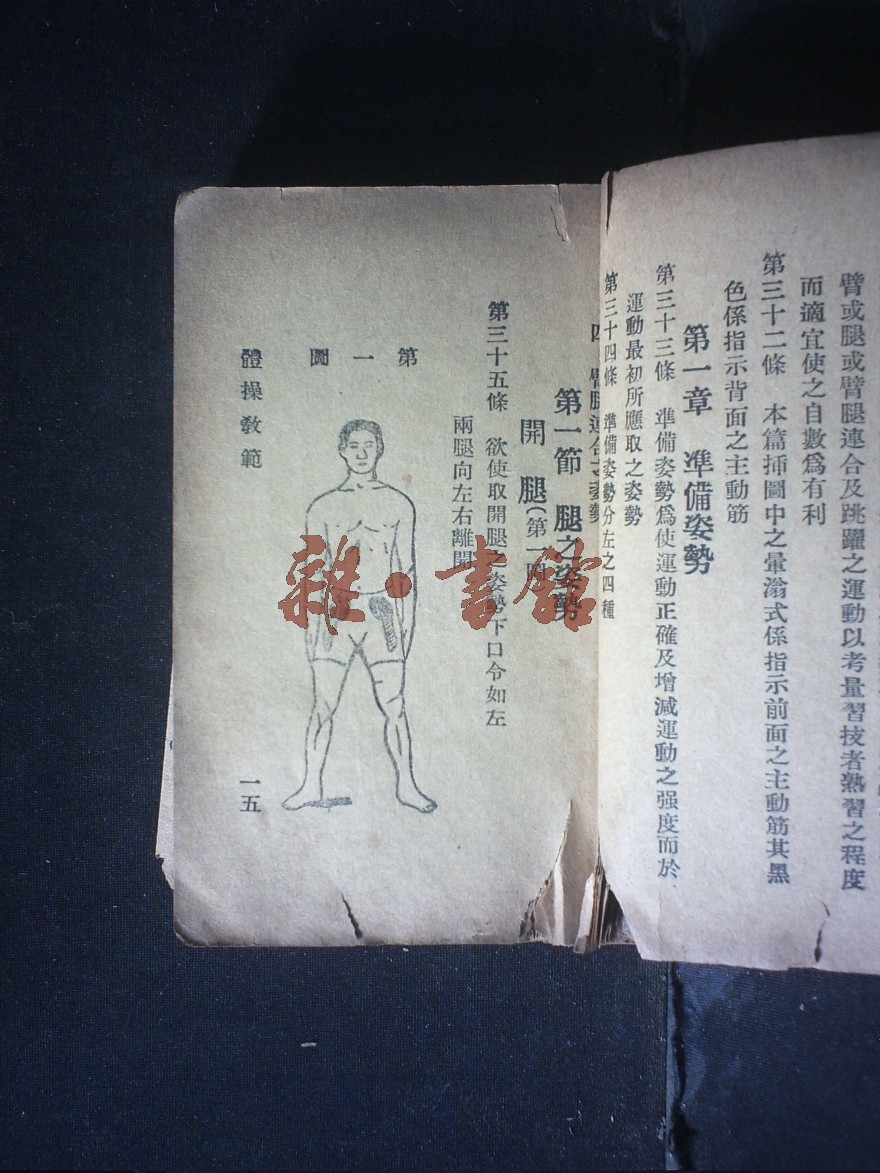 臂或腿或臂腿連合及跳躍之運動以考量習技者熟習之程度
而適宜使之自數爲有利
第三十二條 本篇揷圖中之暈滃式係指示前面之主動筋其黑
色係指示背面之主動筋
第一章 準備姿勢
第三十三條 準備姿勢爲使運動正確及增減運動之强度而於
運動最初所應取之姿勢
第三十四條 準備姿勢分左之四種
四 臂腿連合之姿勢
第一節 腿之姿勢
開 腿(第一圖
第三十五條 欲使取開腿之姿勢下口令如左
兩腿向左右離開
第一圖
體操敎範
一五
雜·書館